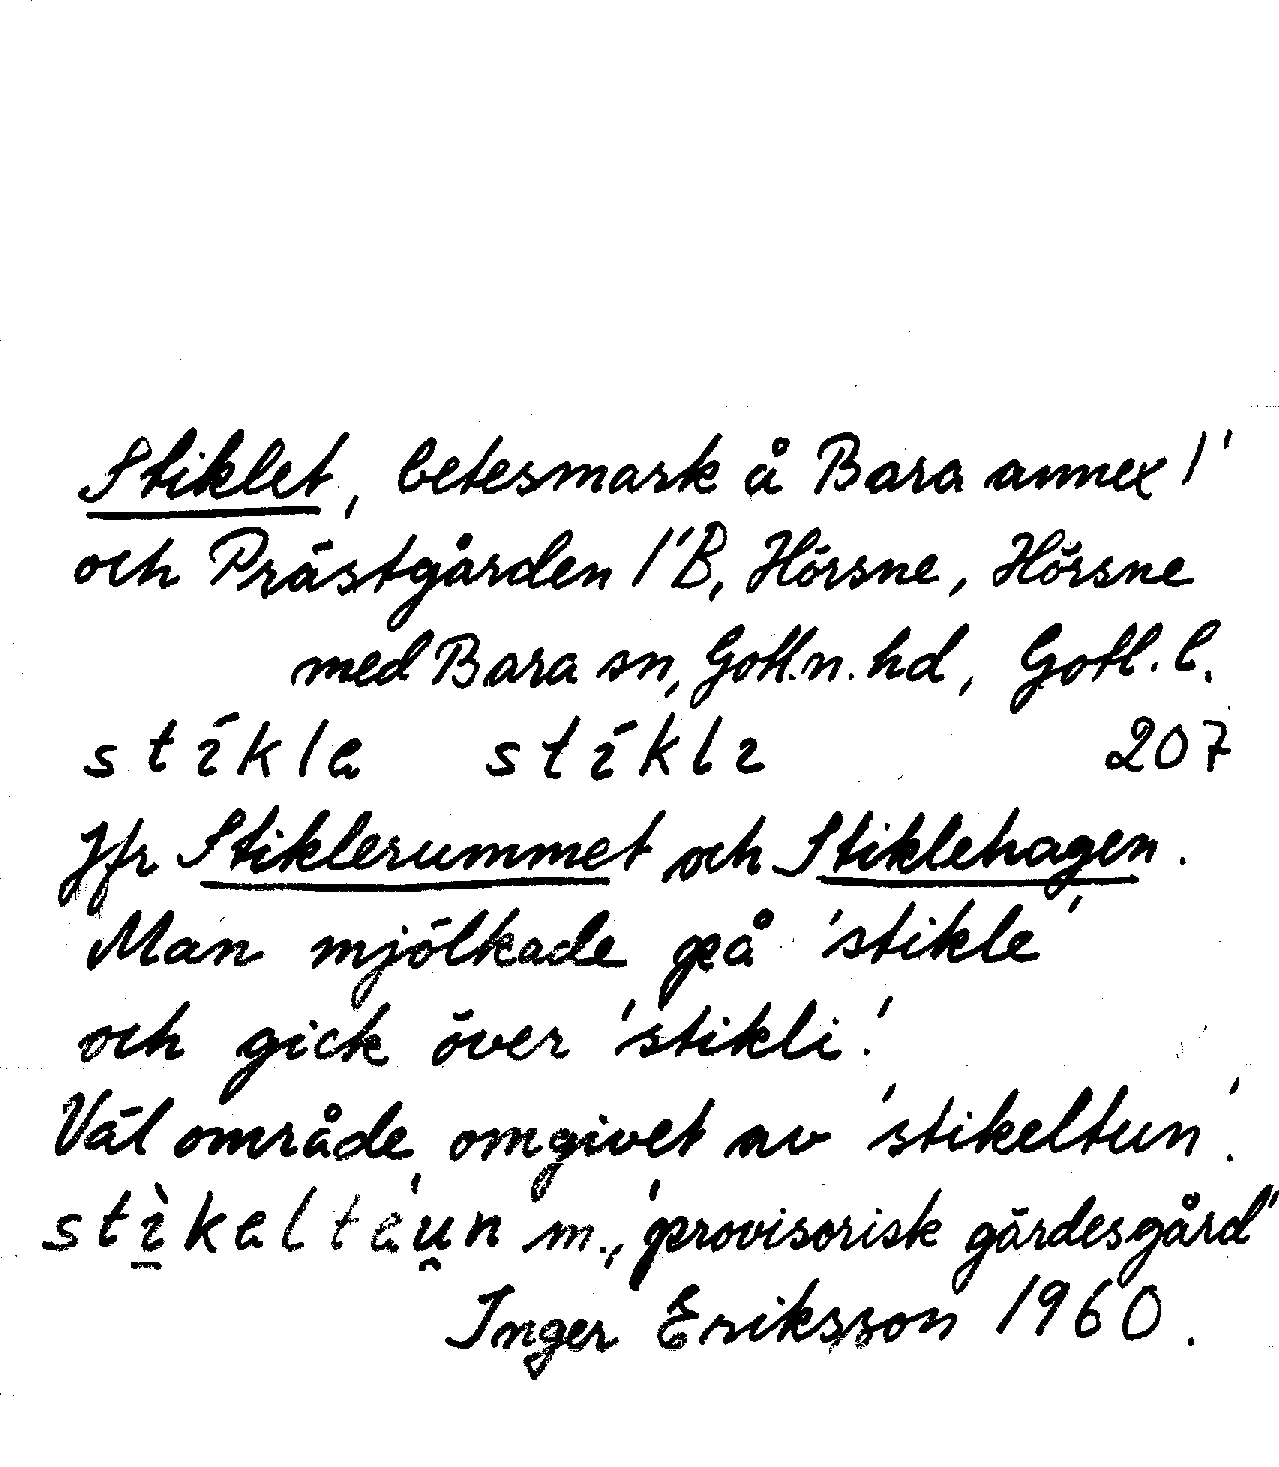 Stiklet, betesmark å Bara annex 1'
och Prästgården 1'B, Hörsne, Hörsne
med Bara sn, Gotl.n.hd, Gotl. l.
stíkla stíklɩ 207
Jfr Stiklerummet och Stiklehagen.
Man mjölkade på 'stikle'
och gick över 'stikli'.
Väl område omgivet av 'stikeltun'.
stìkaltáun m., 'provisorisk gärdesgård'
Inger Eriksson 1960.